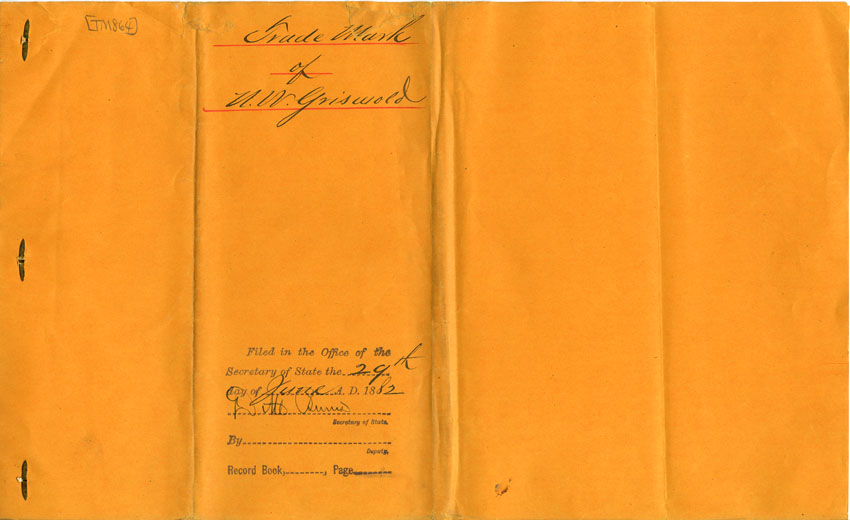 [TM864]
Trade Mark
of
N. W. Griswold
Filed in the Office of the
Secretary of State the 29th
day of June A. D. 1882
Secretary of State.
By
Deputy.
Record Book, , Page